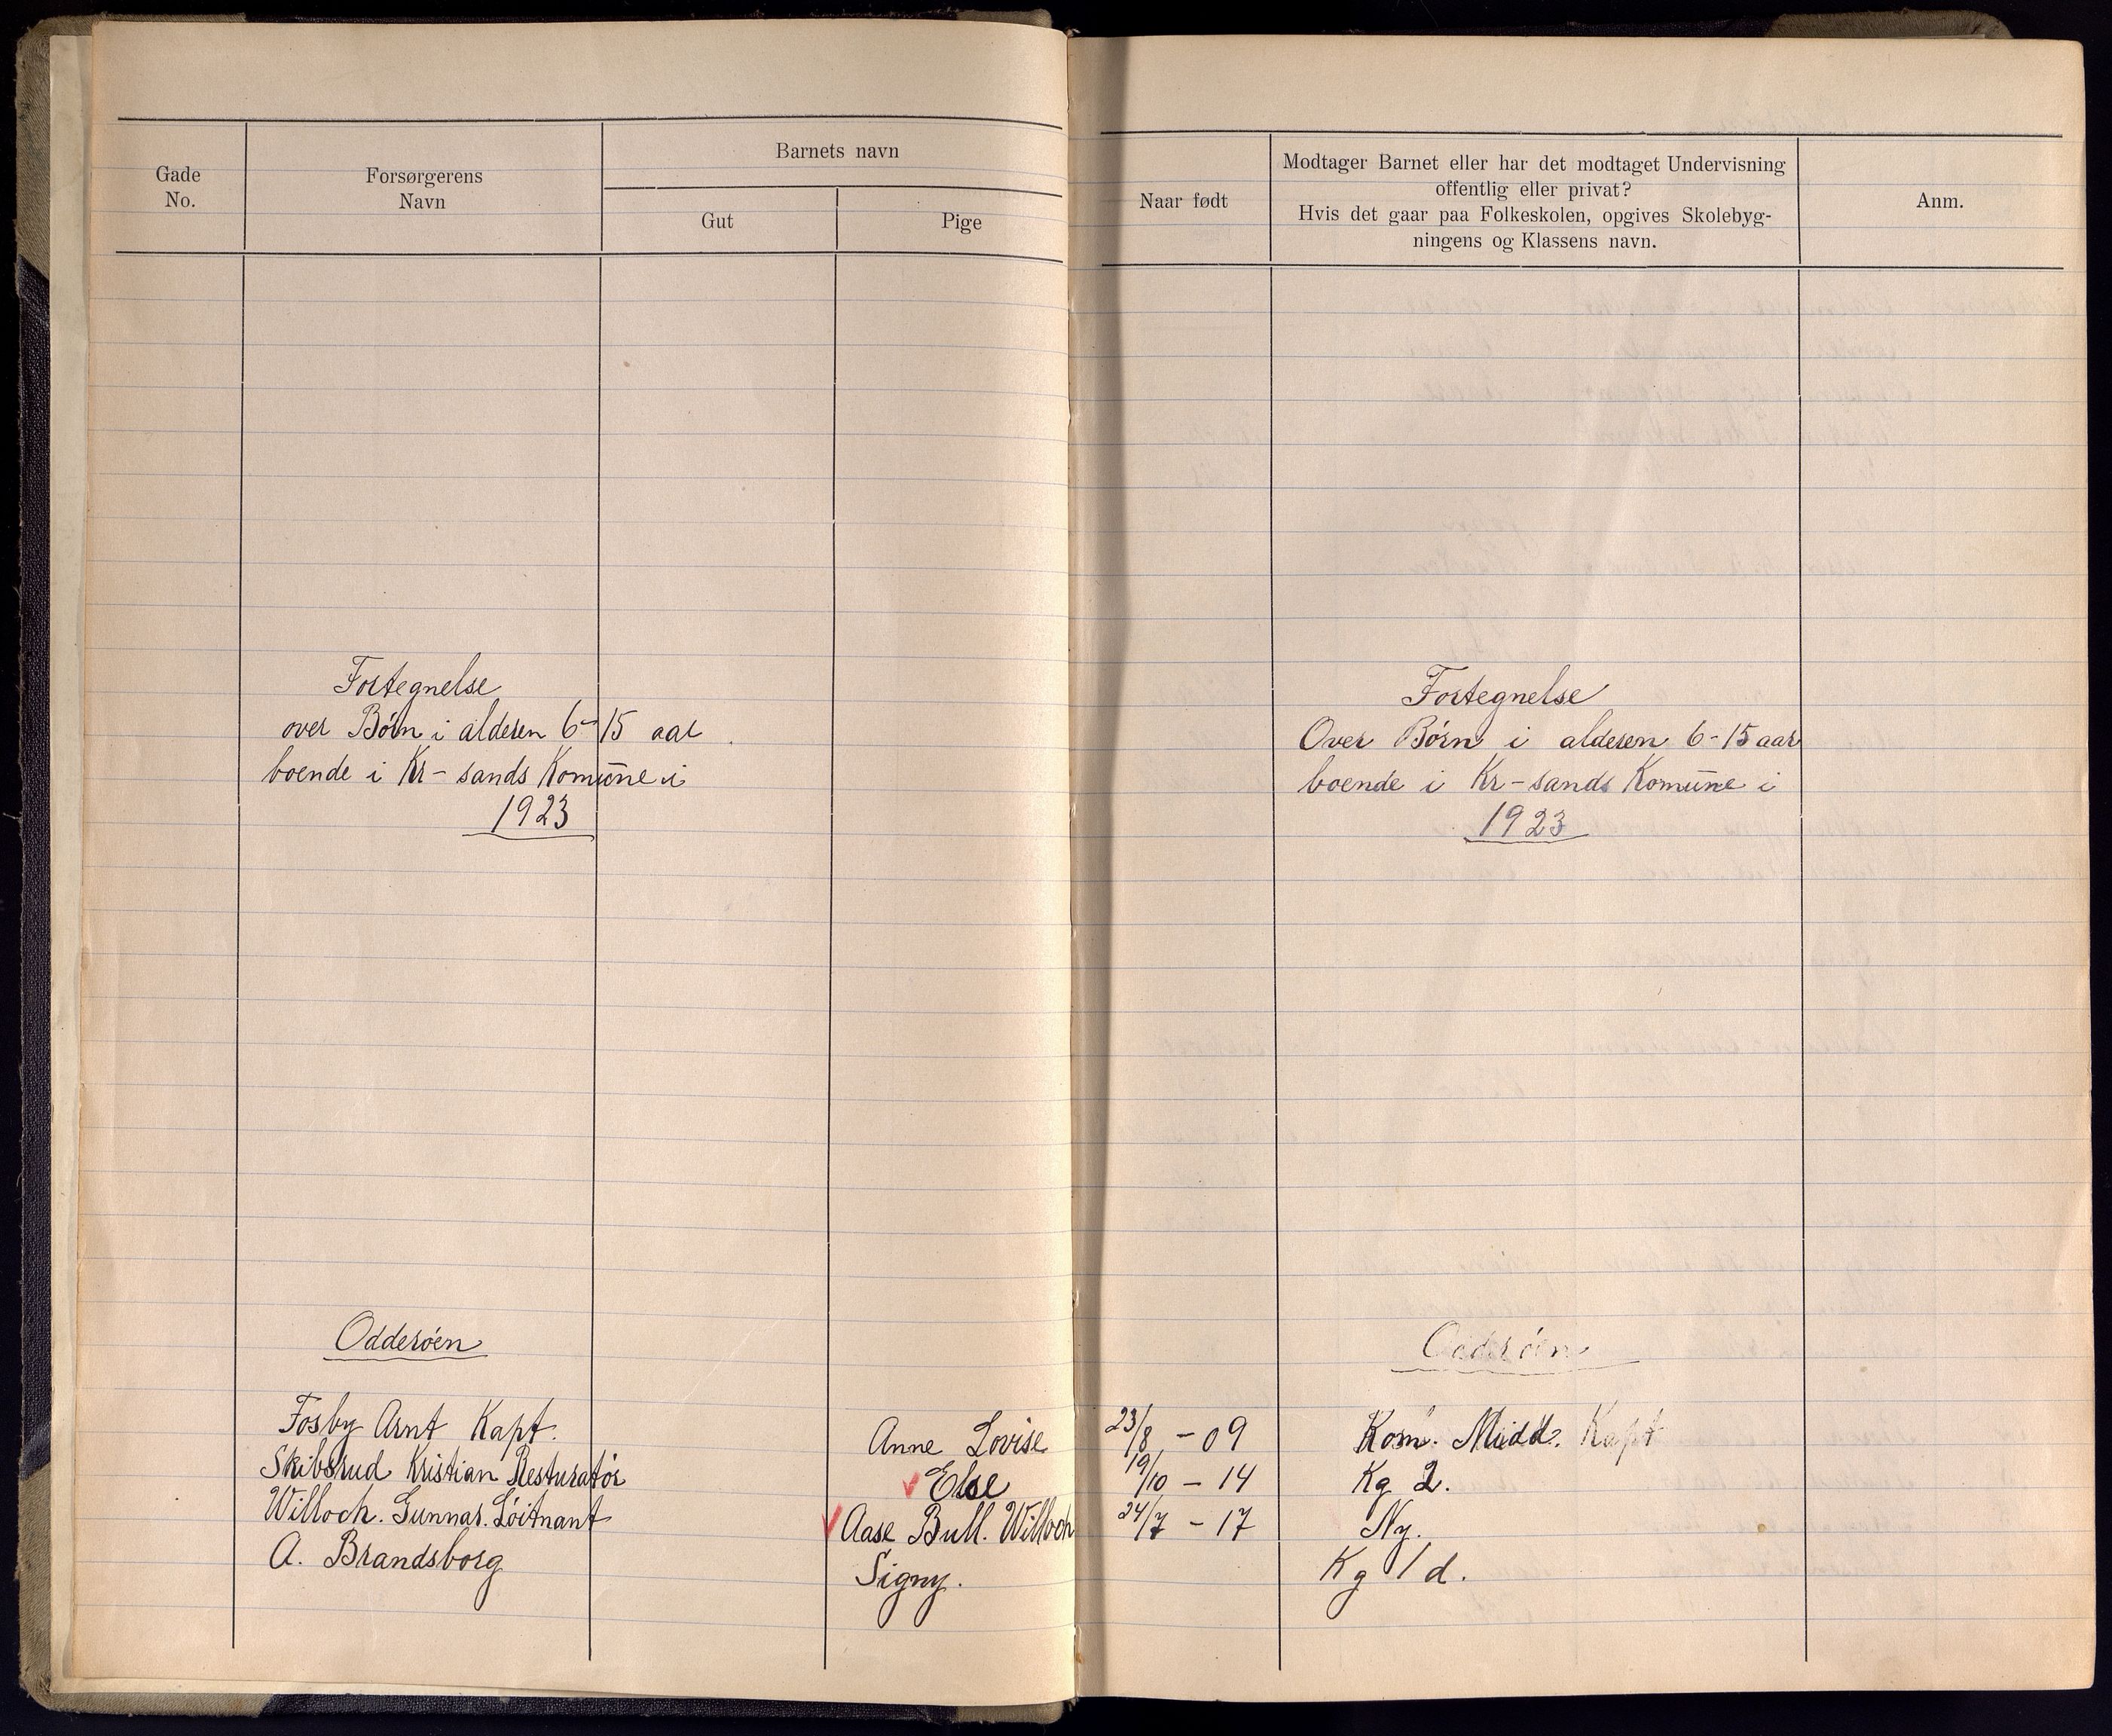 Gade
No.
Forsørgerens
Navn
Barnets navn
Gut
Pige
Naar født
Modtager Barnet eller har det modtaget Undervisning
offentlig eller privat?
Hvis det gaar paa Folkeskolen, opgives Skolebyg-
ningens og Klassens navn.
Anm.
Fortegnelse
over Børn i alderen 6-15 aar
boende i Kr-sands Komūne i
1923
Fortegnelse
Over Børn i alderen 6-15 aar
boende i Kr-sands Komūne i
1923
Odderöen
Odderöen
Fosby Arnt Kapt. Anne Lovise 23/8 - 09 Kom. Midd. Kapt
Skibsrud Kristian Resturatør Else 19/10 - 14 Kg 2.
Willoch. Gunnar. Löitnant Aase Bull. Willoch 24/7 - 17 Ny.
A. Brandsborg Signy. Kg 1 d.